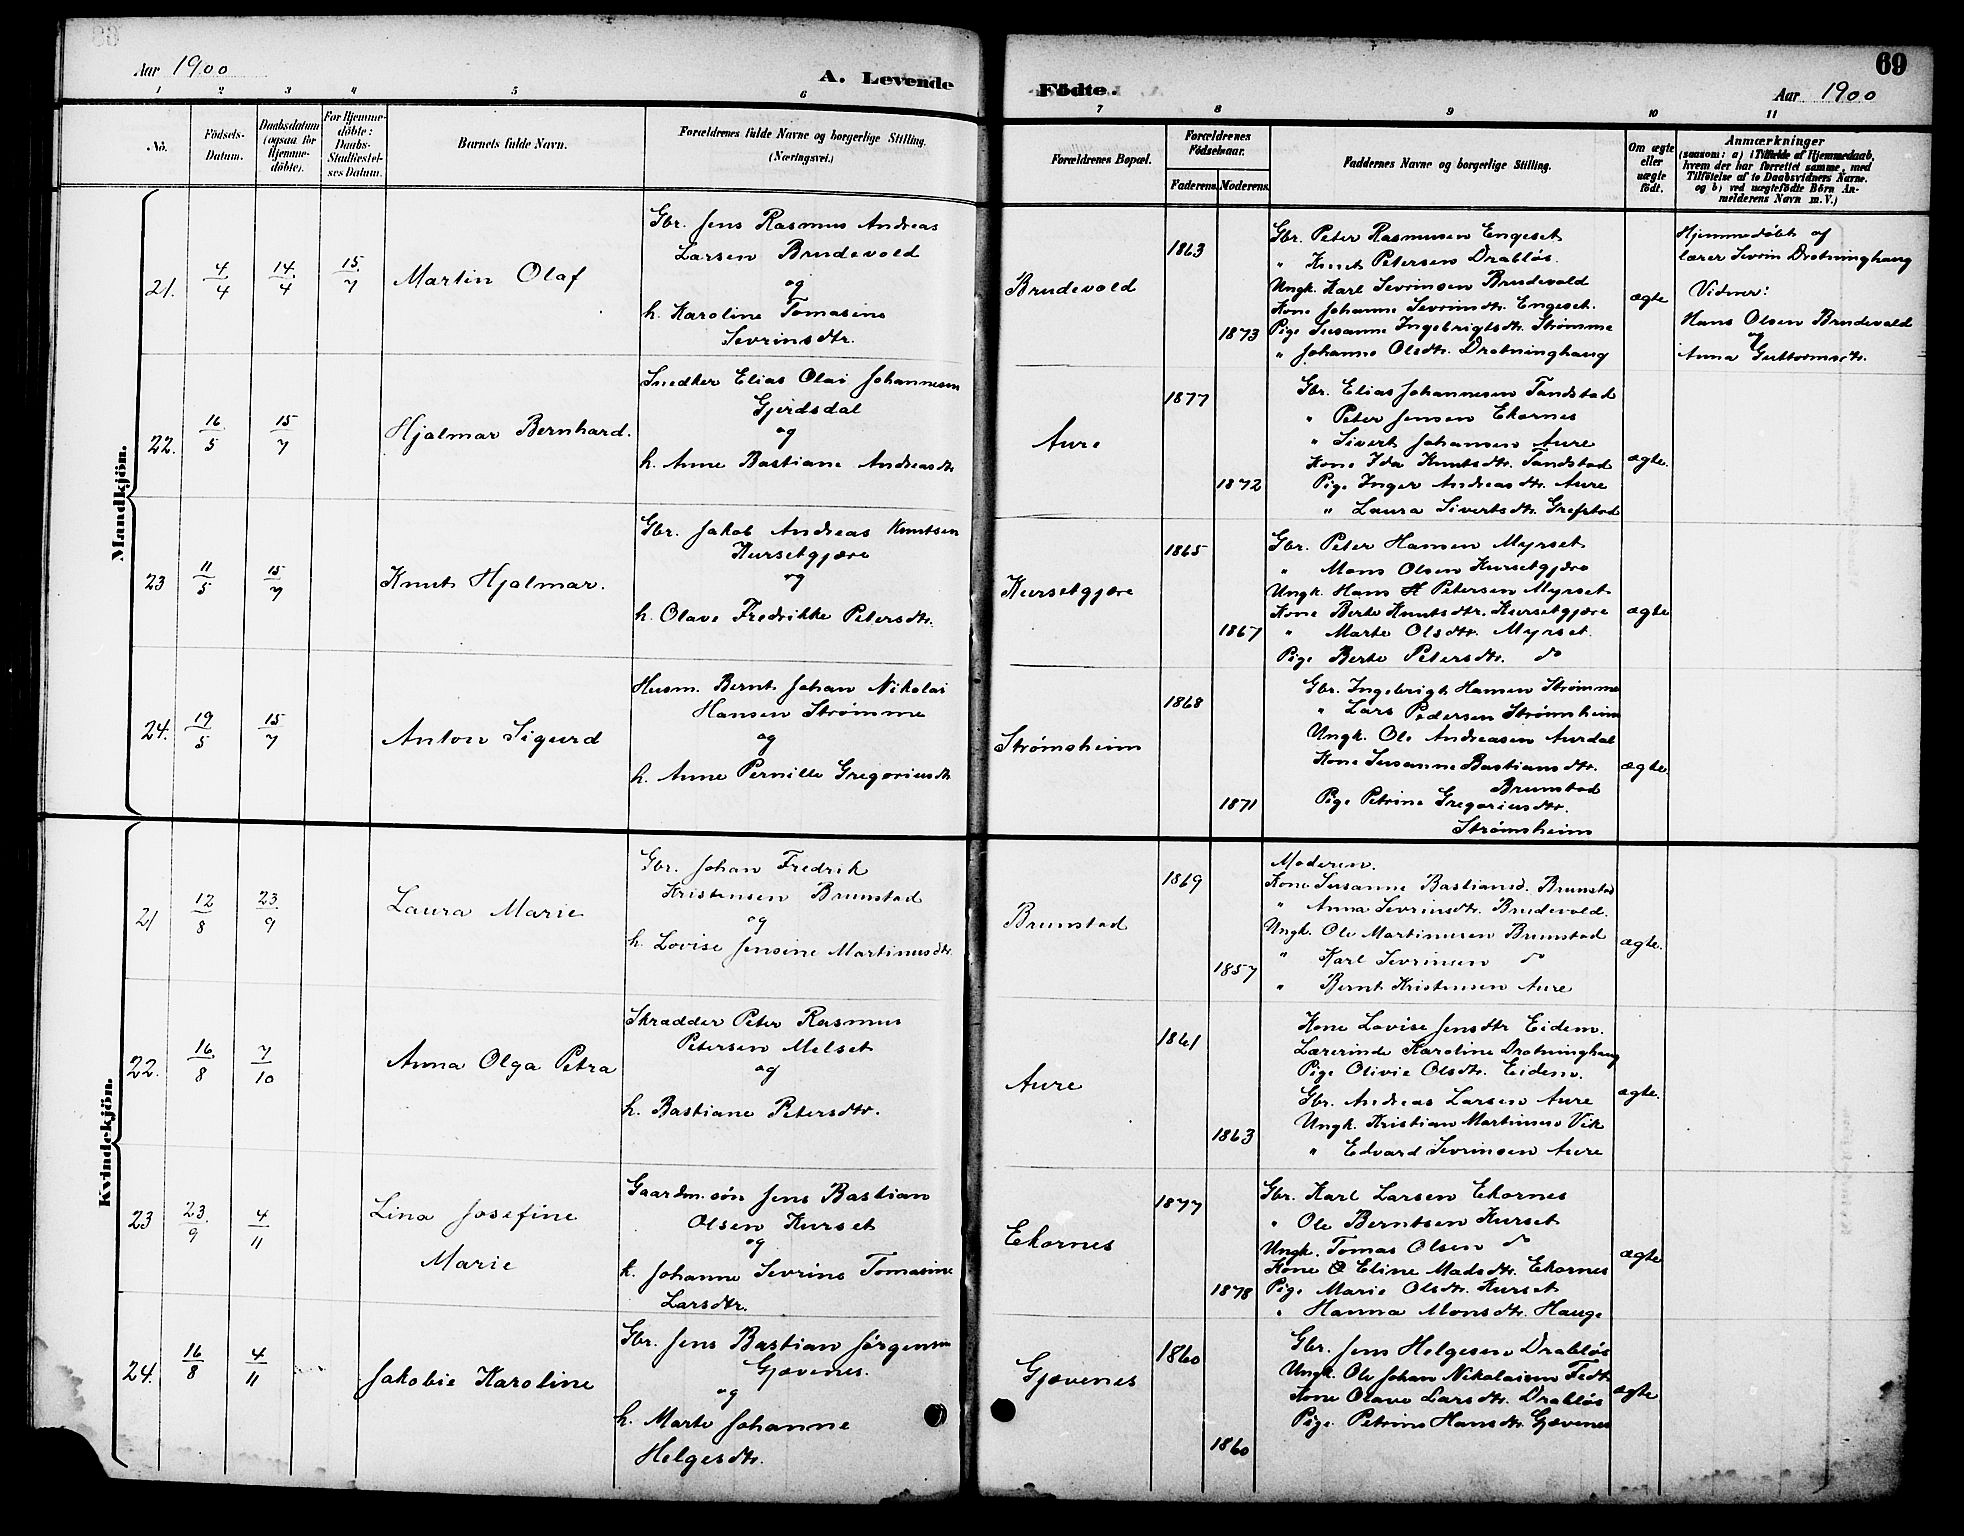 Aar 1900
A. Levende
1 2 3 4 5 6
No.
Födsels-Datum.
Daabsdatum (ogsaa for Hjemme-döbte).
For Hjemme-döbte: Daabs-Stadfæstel-ses Datum.
Barnets fulde Navn.
Forældrenes fulde Navne og borgerlige Stilling. (Næringsvei.)
Mandkjön.
21. 4/4 14/4 15/7 Martin Olaf
Gbr. Jens Rasmus Andreas
Larsen Brudevold
og
h. Karoline Tomasine
Sevrinsdtr.
22. 16/5 15/7 Hjalmar Bernhard.
Snedker Elias Olai Johannesen
Gjerdsdal
og
h. Anne Bastiane Andreasdtr
23 11/5 15/7 Knut Hjalmar.
Gbr. Jakob Andreas Knutsen
Kursetgjære
og
h. Olave Fredrikke Petersdtr.
24. 19/5 15/7 Anton Sigurd
Husm. Bernt Johan Nikolai
Hansen Strømme
og
h. Anne Pernille Gregoriusdtr
Kvindekjön.
21 12/8 23/9 Laura Marie
Gbr. Johan Fredrik
Kristensen Brunstad
og
h. Lovise Jensine Martinusdtr.
22. 16/8 7/10 Anna Olga Petra
Skrædder Peter Rasmus
Petersen Melset
og
h. Bastiane Petersdtr.
23 23/9 4/11 Lina Josefine
Marie
Gaardm.søn Jens Bastian
Olsen Kurset
og
h. Johanne Sevrine Tomasine
Larsdtr.
24. 16/8 4/11 Jakobie Karoline
Gbr. Jens Bastian Jørgensen
Gjævenes.
og
h. Marte Johanne
Helgesdtr.
69
Födte.
Aar 1900
7 8 9 10 11
Forældrenes Bopæl.
Forældrenes Födselsaar.
Faderens. Moderens.
Faddernes Navne og borgerlige Stilling.
Om ægte eller uægte födt.
Anmærkninger
(saasom: a) i Tilfælde af Hjemmedaab,
hvem der har forrettet samme, med
Tilföielse af to Daabsvidners Navne.
og b) ved uægtefödte Börn An-
melderens Navn m. V.)
Brudevold 1863 1873
Gbr. Peter Rasmusen Engeset
" Knut Petersen Drabløs.
Ungk. Karl Sevrinsen Brudevold
Kone Johanne Sevrinsdtr. Engeset.
Pige Susanne Ingebrigtsdtr. Strømme
" Johanne Olsdtr. Drotninghaug
ægte
Hjemmedøbt af
lærer Sevrin Drotninghaug
Vidner:
Hans Olsen Brudevold
og
Anna Guttormsdtr.
Aure 1877 1872
Gbr. Elias Johannesen Tandstad
" Peter Jensen Ekornes
" Sivert Johansen Aure
Kone Ida Knutsdtr. Tandstad
Pige Inger Andreasdtr. Aure
" Laura Sivertsdtr. Grefstad
ægte.
Kursetgjære 1865 1867
Gbr. Peter Hansen Myrset
" Mons Olsen Kursetgjære
Ungk. Hans H Petersen Myrset
Kone Berte Knutsdtr. Kursetgjære
" Marte Olsdtr. Myrset.
Pige Berte Petersdtr. do
ægte
Strømsheim 1868 1871
Gbr. Ingebrigt Hansen Strømme
" Lars Pedersen Strømsheim
Ungk. Ole Andreasen Aurdal
Kone Susanne Bastiansdtr.
Brunstad
Pige Petrine Gregoriusdtr.
Strømsheim
ægte.
Brunstad 1869 1857
Moderen.
Kone Susanne Bastiansd. Brunstad
" Anna Sevrinsdtr. Brudevold.
Ungk. Ole Martinusen Brunstad
" Karl Sevrinsen do
" Bernt Kristensen Aure
ægte.
Aure 1861 1863
Kone Lovise Jensdtr Eidem.
Lærerinde Karoline Drotninghaug
Pige Olivie Olsdtr. Eidem.
Gbr. Andreas Larsen Aure
Ungk. Kristian Martinsen Vik
" Edvard Sevrinsen Aure
ægte.
Ekornes 1877 1878
Gbr. Karl Larsen Ekornes
" Ole Berntsen Kurset
Ungk. Tomas Olsen do
Kone Eline Madsdtr. Ekornes
Pige Marie Olsdtr. Kurset
" Hanna Monsdtr. Hauge
ægte
Gjævenes 1860 1860
Gbr. Jens Helgesen Drabløs
Ungk. Ole Johan Nikolaisen Fedt
Kone Olave Larsdtr. Drabløs
Pige Petrine Hansdtr. Gjævenes
ægte